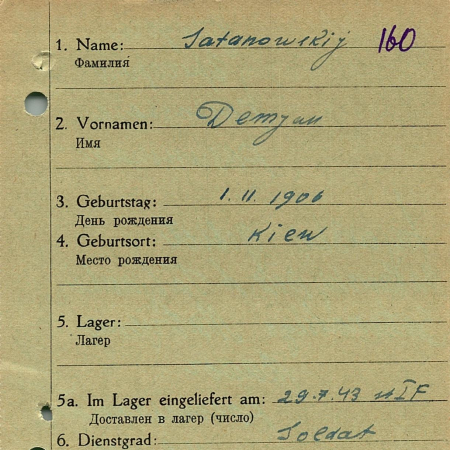 1. Name: Satanowskij 160
Фамилия
2. Vornamen: Demjan
Имя
3. Geburtstag: 1. 11. 1906
День рождения
4. Geburtsort: Kiew
Место рождения
5. Lager:
Лагерь
5a. Im Lager eingeliefert am: 29.7.43 IF
Доставлен в лагерь (число)
6. Dienstgrad: Soldat